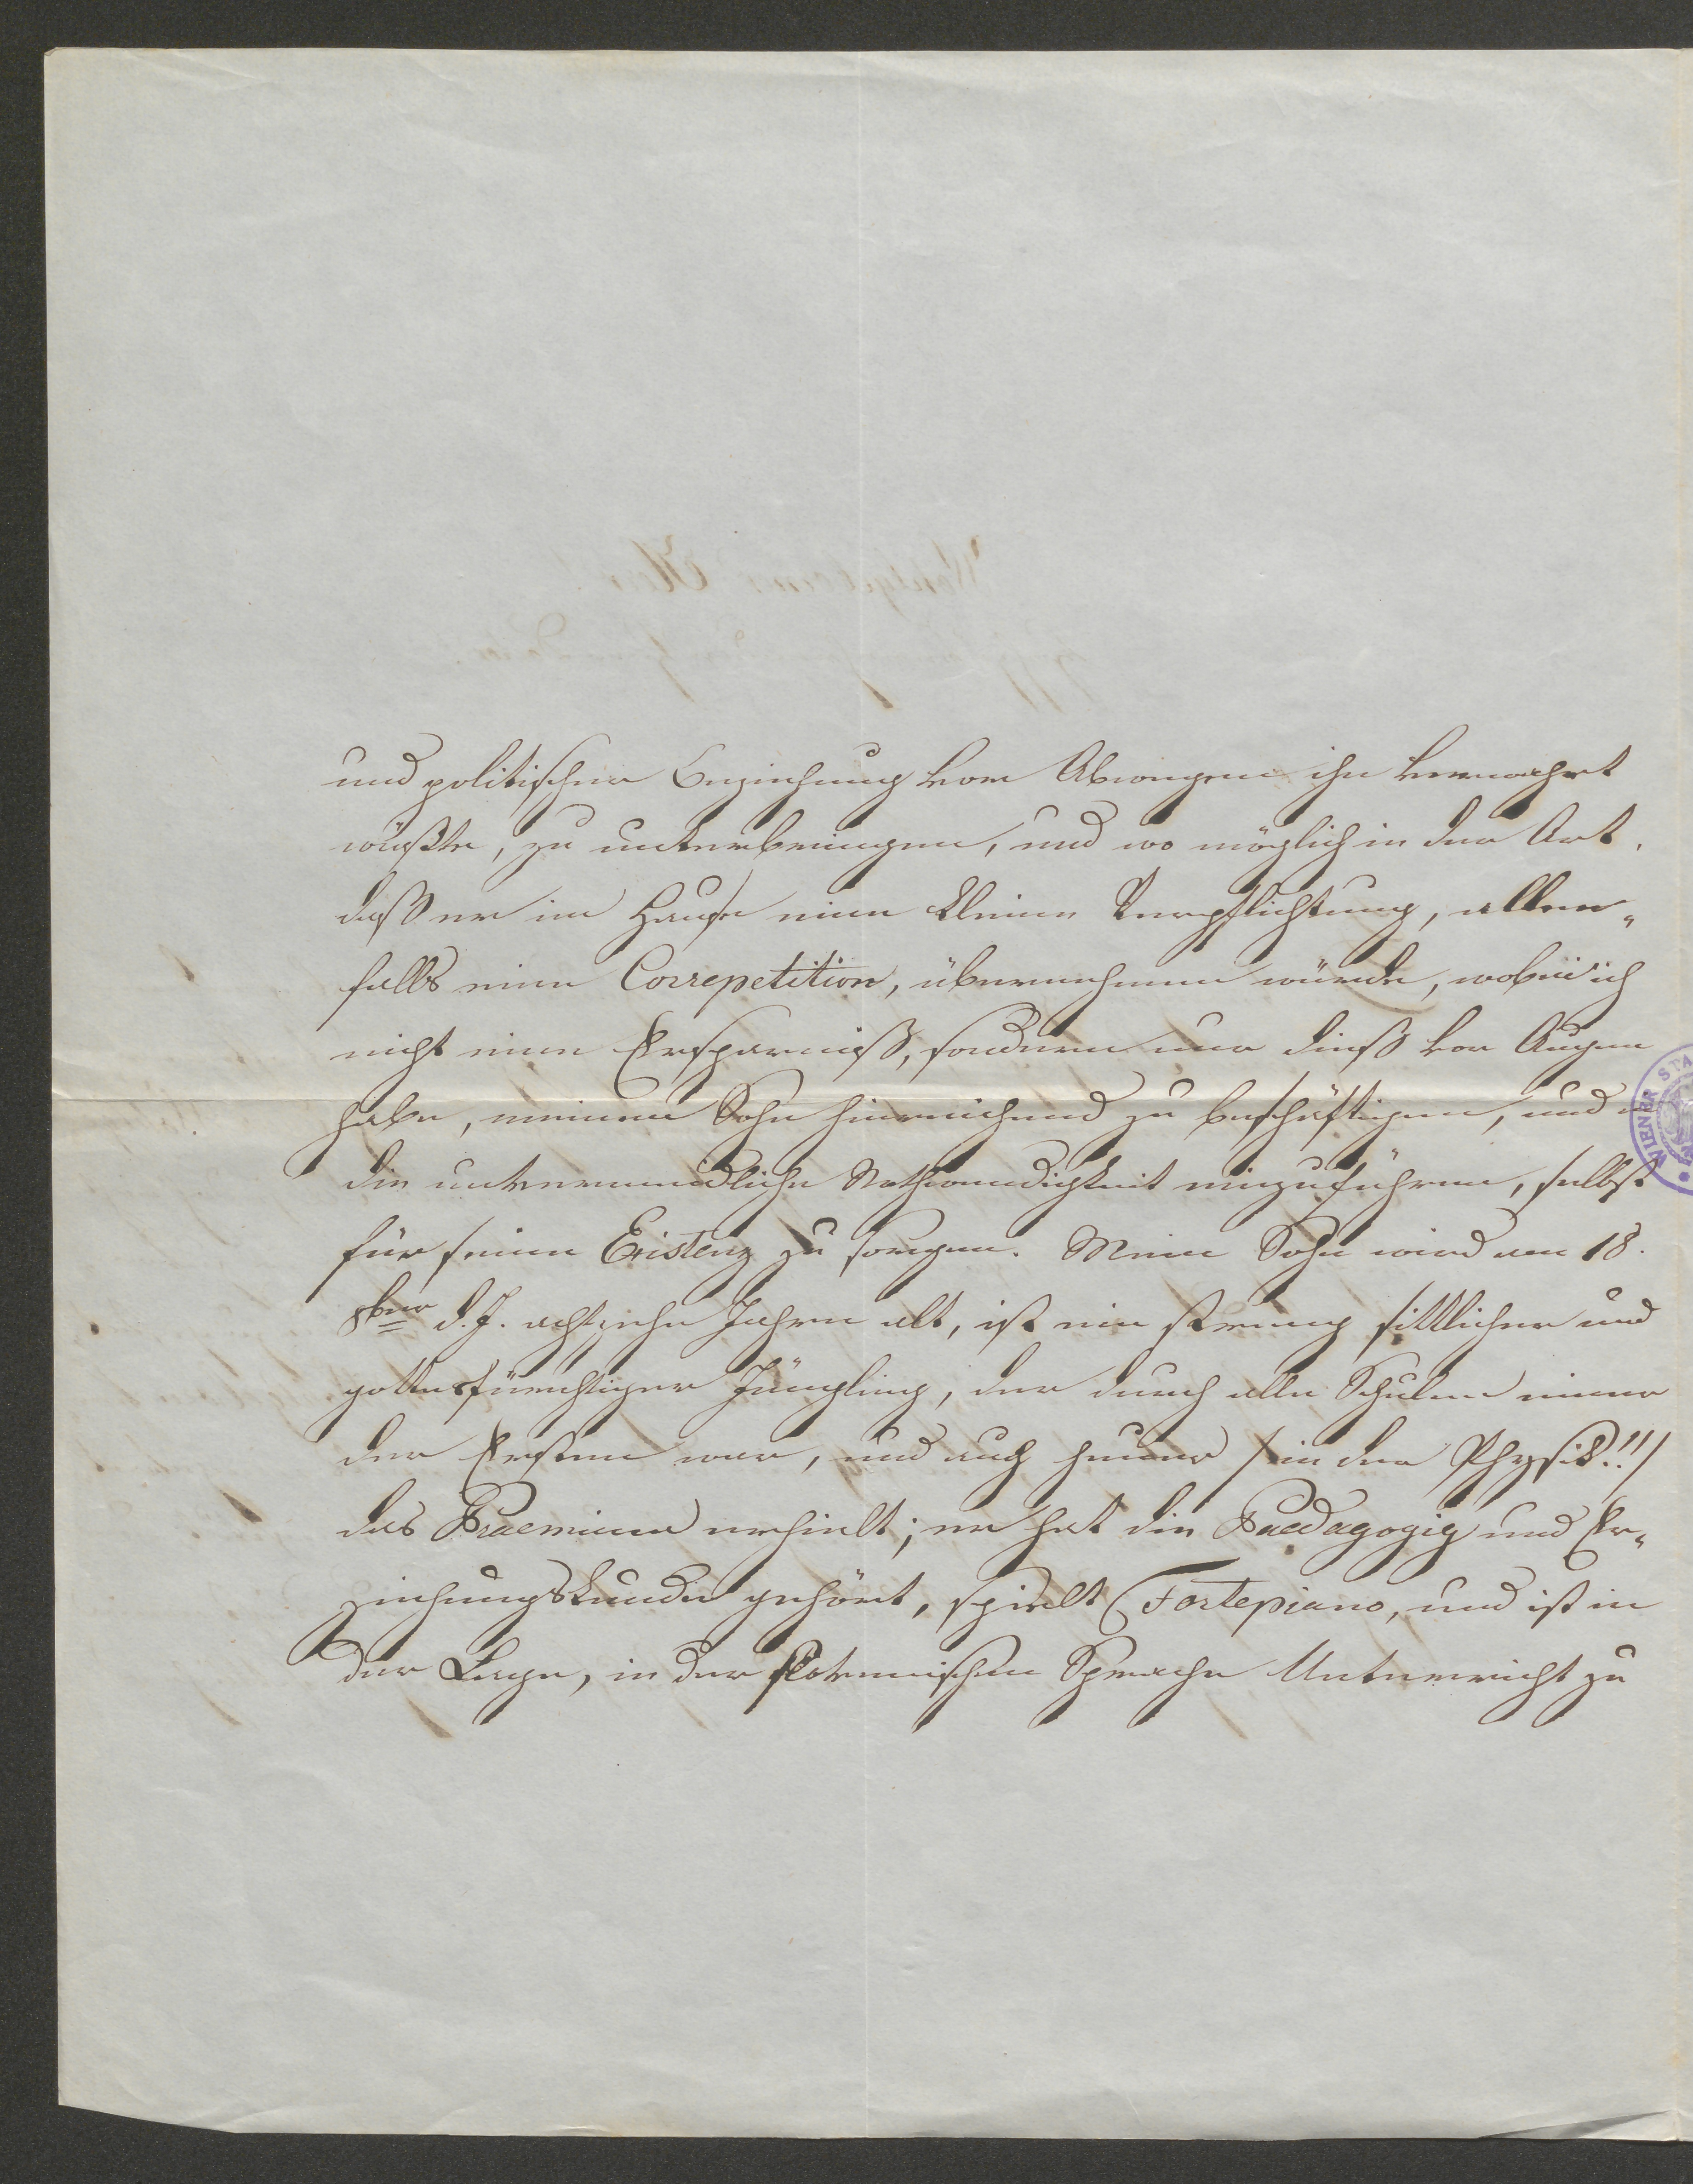 und politischer Beziehung vor Abwegen ihn verwahrt
wüßte, zu unterbringen, und wo möglich in der Art,
daß er im Hause eine kleine Verpflichtung, allen„
falls eine Correpetition, übernehmen würde, wobei ich
nicht eine Ersparniß, sondern nur dieß vor Augen
habe, meinen Sohn hinreichend zu beschäftigen, und
die unvermeidliche Nothwendigkeit einzuführen, selbst
für seine Existenz zu sorgen. Mein Sohn wird am 18.
8ber d. J. achtzehn Jahre alt, ist ein streng sittlicher und
gottesfürchtiger Jüngling, der durch alle Schulen einer
der Ersten war, und auch heuer /in der Physik!!/
das Praemium erhielt; er hat die Paedagogig und Er„
ziehungskunde gehört, spielt Fortepiano, und ist in
der Lage, in der slovenischen Sprache Unterricht zu
WIENER STA